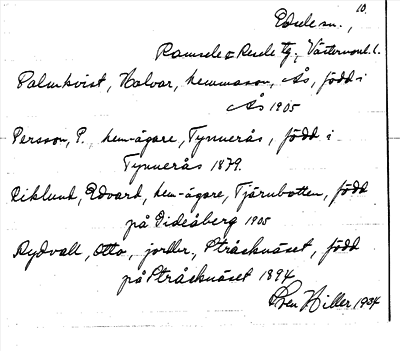 10.
Edsele sn.,
Ramsele & Resele tg, Västernorrl. l.
Palmkvist, Halvar, hemmason, Ås, född i
Ås 1905
Persson, P., hem.ägare, Tynnerås, född i
Tynnerås 1879.
Wiklund, Edvard, hem-ägare, Tjärnbotten, född
på 1905
Rydvall, Otto, jordbr., Stråsknäset, född
på Stråsknäset 1894
Hiller 1934